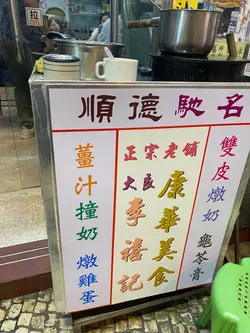 拉
順德馳名
薑汁撞奶 燉雞蛋
正宗老舖
大良
李禧記
康華美食
雙皮燉奶 龜苓膏